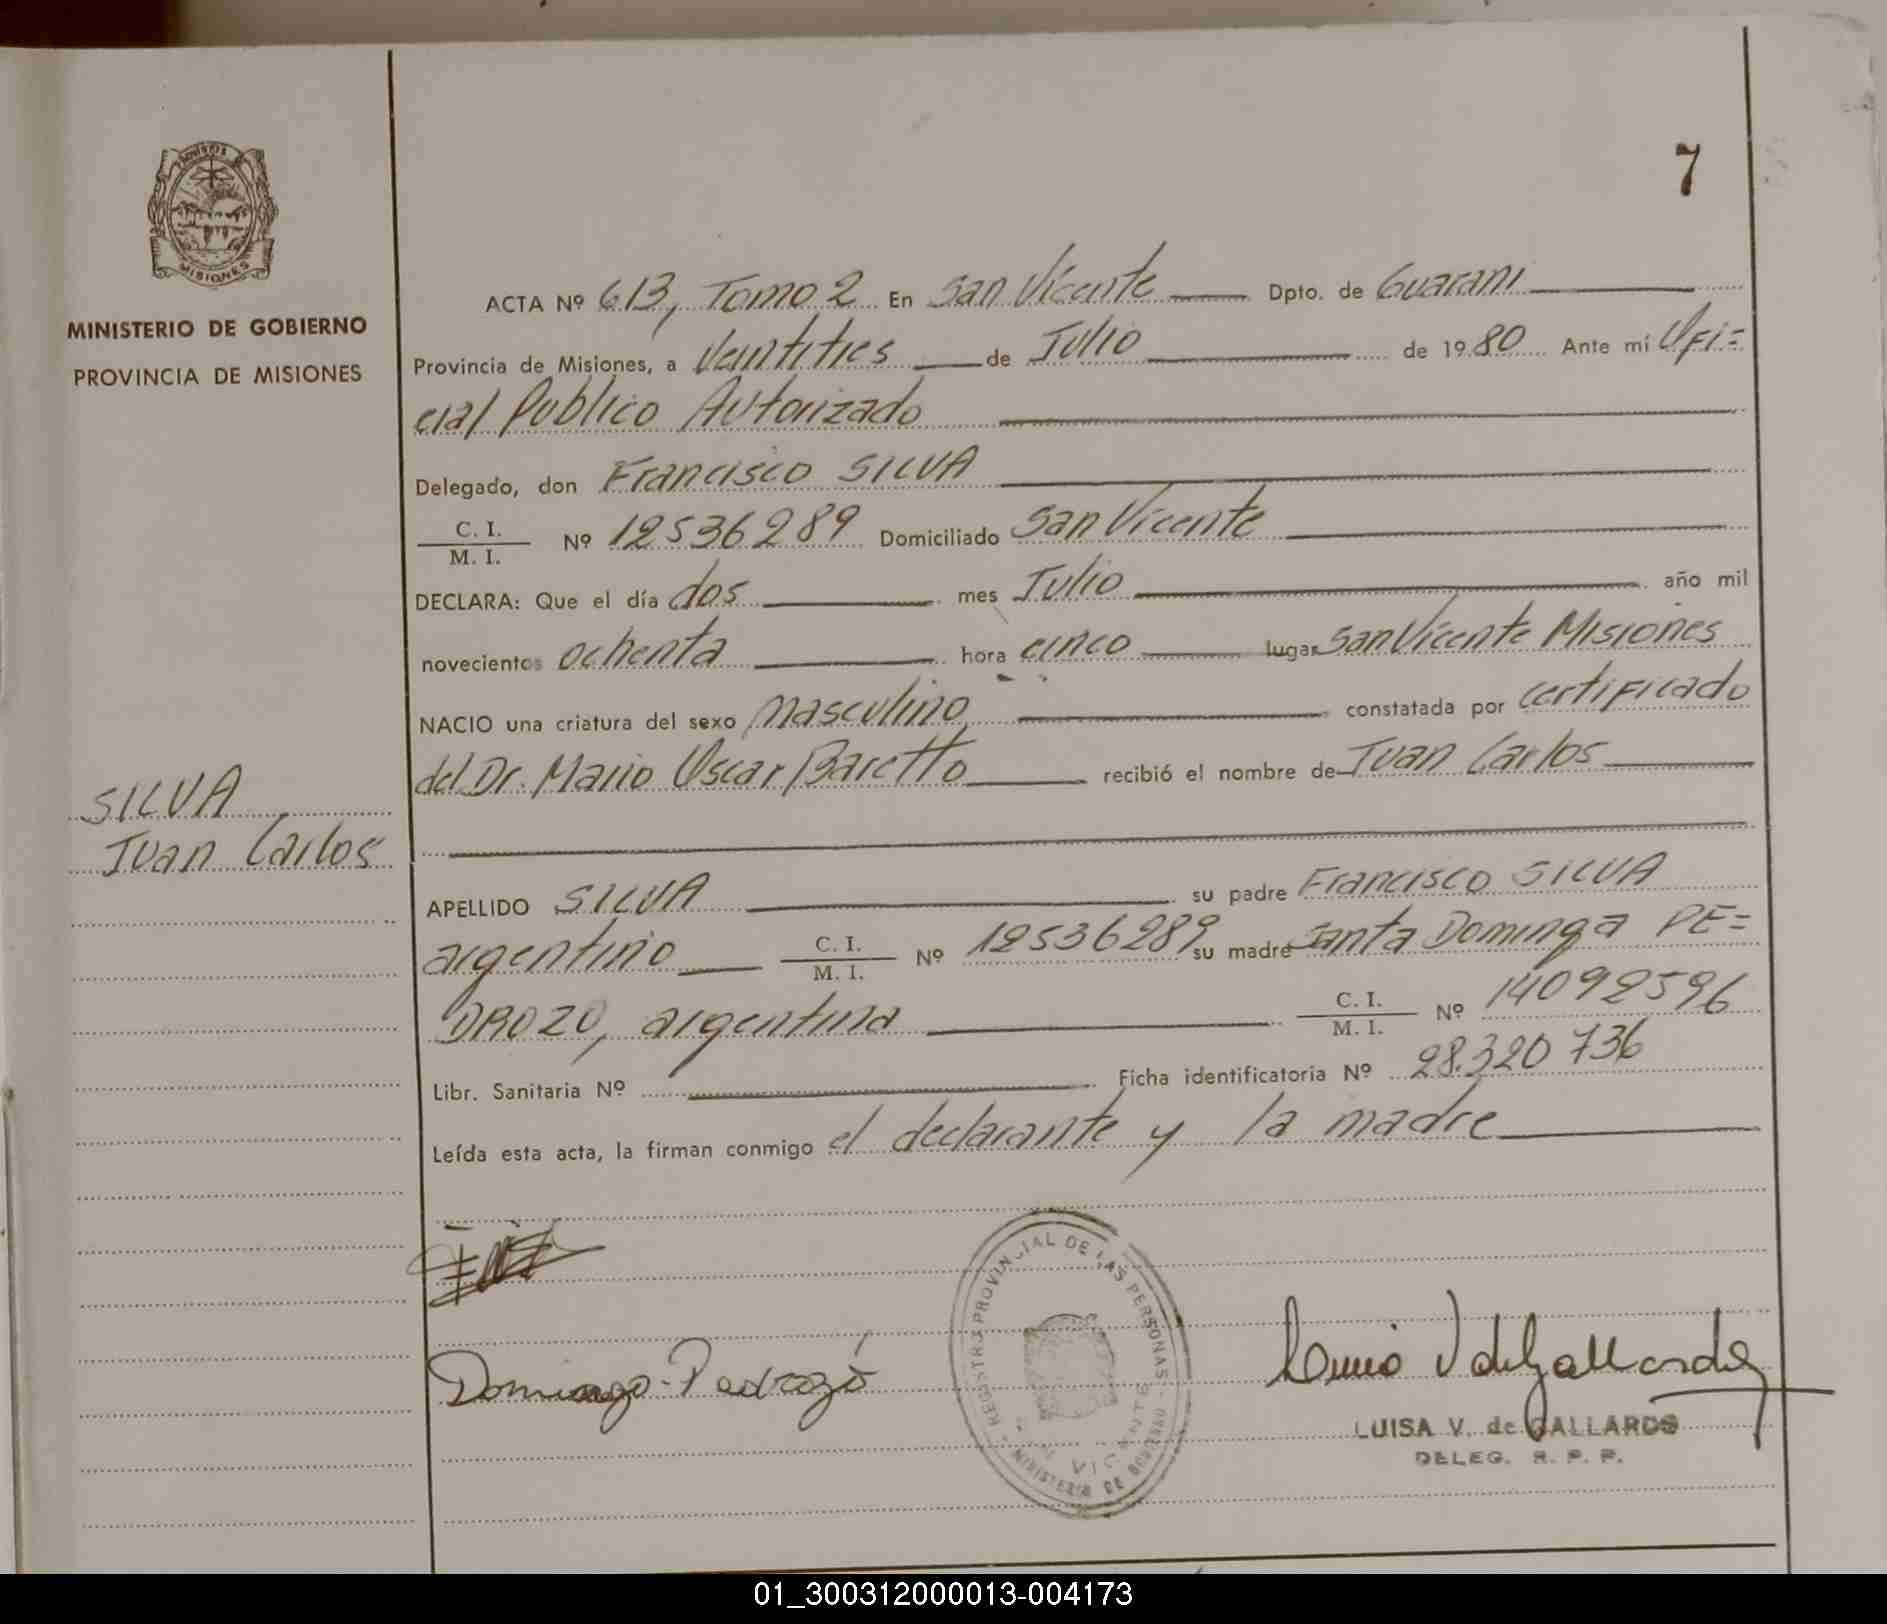 7
MISIONES
MINISTERIO DE GOBIERNO
PROVINCIA DE MISIONES
ACTA Nº 613, Tomo 2 En San Vicente Dpto. de Guarani
Provincia de Misiones, a Veintitres de Julio de 1980 Ante mí Ofi=
cial Publico Autorizado
Delegado, don Francisco SILVA
C. I. / M. I. Nº 12536289 Domiciliado San Vicente
DECLARA: Que el día dos mes Julio año mil
novecientos ochenta hora cinco lugar San Vicente Misiones
NACIO una criatura del sexo masculino constatada por certificado
del Dr. Mario Oscar Baretto recibió el nombre de Juan Carlos
SILVA
Juan Carlos
APELLIDO SILVA su padre Francisco SILVA
argentino C. I. / M. I. Nº 12536289 su madre Santa Dominga PE=
DROZO, argentina C. I. / M. I. Nº 14092596
Libr. Sanitaria Nº Ficha identificatoria Nº 28.320736
Leída esta acta, la firman conmigo el declarante y la madre
REGISTRO PROVINCIAL DE LAS PERSONAS
MINISTERIO DE GOBIERNO
VICENTE
LUISA V. de GALLARDO
DELEG. R. P. P.
01_300312000013-004173